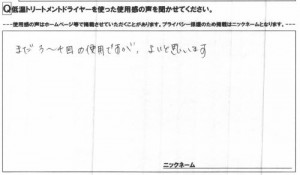 Q低温トリートメントドライヤーを使った使用感の声を聞かせてください。
----使用感の声はホームページ等で掲載させていただくことがあります。プライバシー保護のため掲載はニックネームとなります。----
まだ3〜4回の使用ですが、よいと思います
ニックネーム